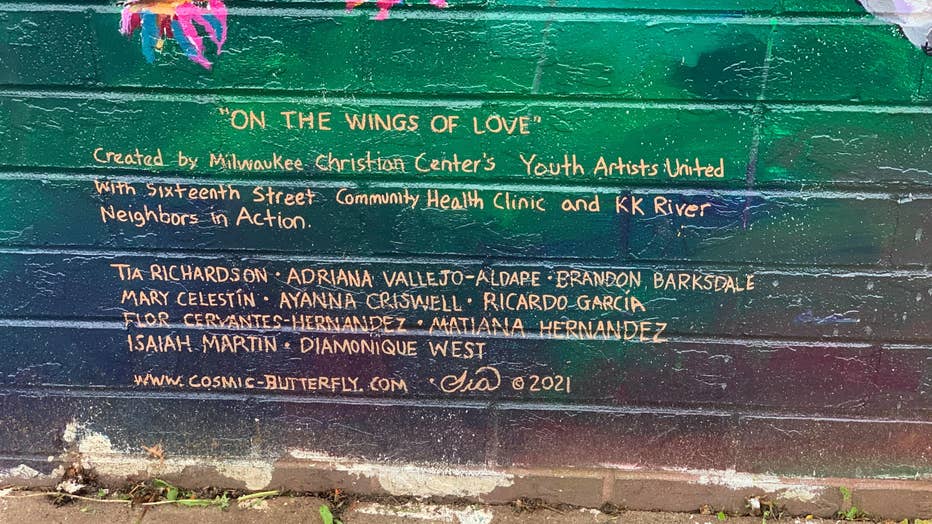 "ON THE WINGS OF LOVE"
Created by Milwaukee Christian Center's Youth Artists United
With Sixteenth Street Community Health Clinic and KK River
Neighbors in Action.
TIA RICHARDSON · ADRIANA VALLEJO-ALDAPE · BRANDON BARKSDALE
MARY CELESTÍN · AYANNA CRISWELL · RICARDO GARCÍA
FLOR CERVANTES-HERNANDEZ · MATIANA HERNANDEZ
ISAIAH MARTIN · DIAMONIQUE WEST
WWW.COSMIC-BUTTERFLY.COM · Tia ©2021